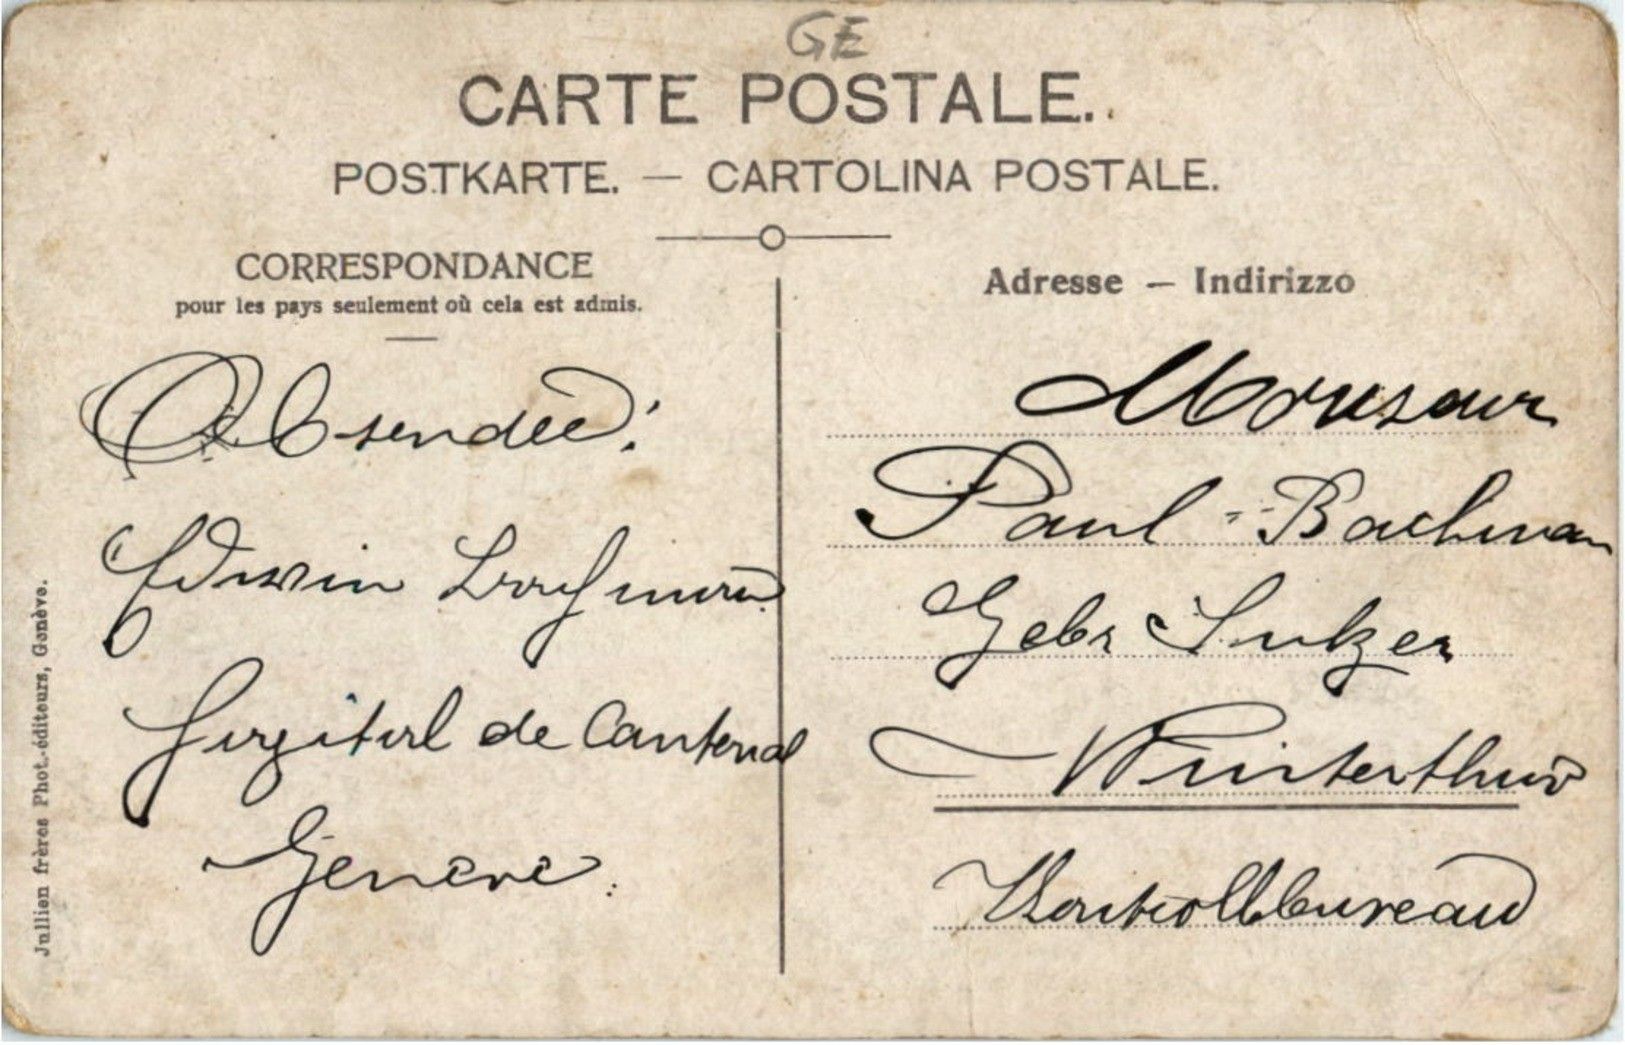 GE
CARTE POSTALE.
POSTKARTE. — CARTOLINA POSTALE.
CORRESPONDANCE
pour les pays seulement où cela est admis.
Absender:
Edwin Bachmann
de Cantonal
Genève.
Adresse — Indirizzo
Monsieur
Paul Bachman
Gebr Sulzer
Winterthur
Kontrollbureau
Jullien frères Phot.-éditeurs, Genève.